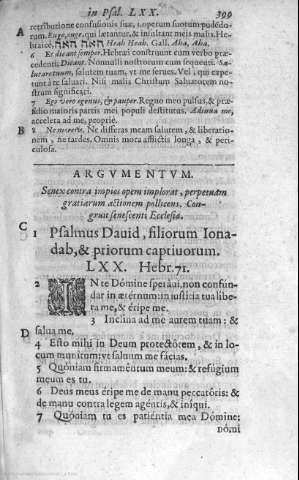 in Psal. LXX. 399
A retributione confusionis suæ, i. operum suorum pudendo-
rum. Euge, euge, qui lætantur, & insultant meis malis. He-
braicè, האח האח Heah Heah. Gall. Aha, Aha.
6 Et dicant semper. Hebræi construunt cum verbo præ-
cedenti, Dicant. Nonnulli nostrorum cum sequenti. Sa-
lutaretuum, salutem tuam, vt me serues. Vel, qui expe-
tunt à te saluari. Nisi malis Christum Saluatorem no-
strum significari.
7 Ego verò egenus, & pauper. Regno meo pulsus, & præ-
sidio maioris partis mei populi destitutus, Adiuua me,
accelera ad me, propriè.
B 2 Ne moreris. Ne differas meam salutem, & liberatio-
nem, ne tardes. Omnis mora afflictis longa, & peri-
culosa.
ARGVMENTVM.
Senex contra impios opem implorat, perpetuam
gratiarum actionem pollicens. Con-
gruit senescenti Ecclesiæ.
C
1 Psalmus Dauid, filiorum Iona-
dab, & priorum captiuorum.
LXX. Hebr. 71.
2 IN te Dómine speraui, non confun-
dar in æternum: in iustitia tua libe-
ra me, & éripe me.
3 Inclína ad me aurem tuam: &
D salua me.
4 Esto mihi in Deum protectórem, & in lo-
cum munítum: vt saluum me fácias.
5 Quóniam firmaméntum meum: & refúgium
meum es tu.
6 Deus meus éripe me de manu peccatóris: &
de manu contra legem agéntis, & iníqui.
7 Quóniam tu es patiéntia mea Dómine:
dómi